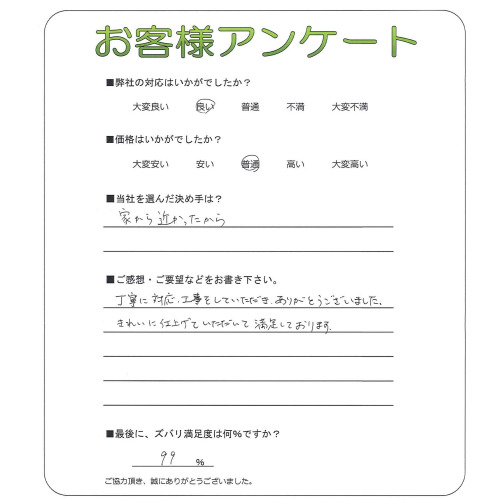 お客様アンケート
■弊社の対応はいかがでしたか？
大変良い 良い 普通 不満 大変不満
■価格はいかがでしたか？
大変安い 安い 普通 高い 大変高い
■当社を選んだ決め手は？
家から近かったから
■ご感想・ご要望などをお書き下さい。
丁寧に対応、工事をしていただき、ありがとうございました。
きれいに仕上げていただいて満足しております。
■最後に、ズバリ満足度は何%ですか？
99 %
ご協力頂き、誠にありがとうございました。